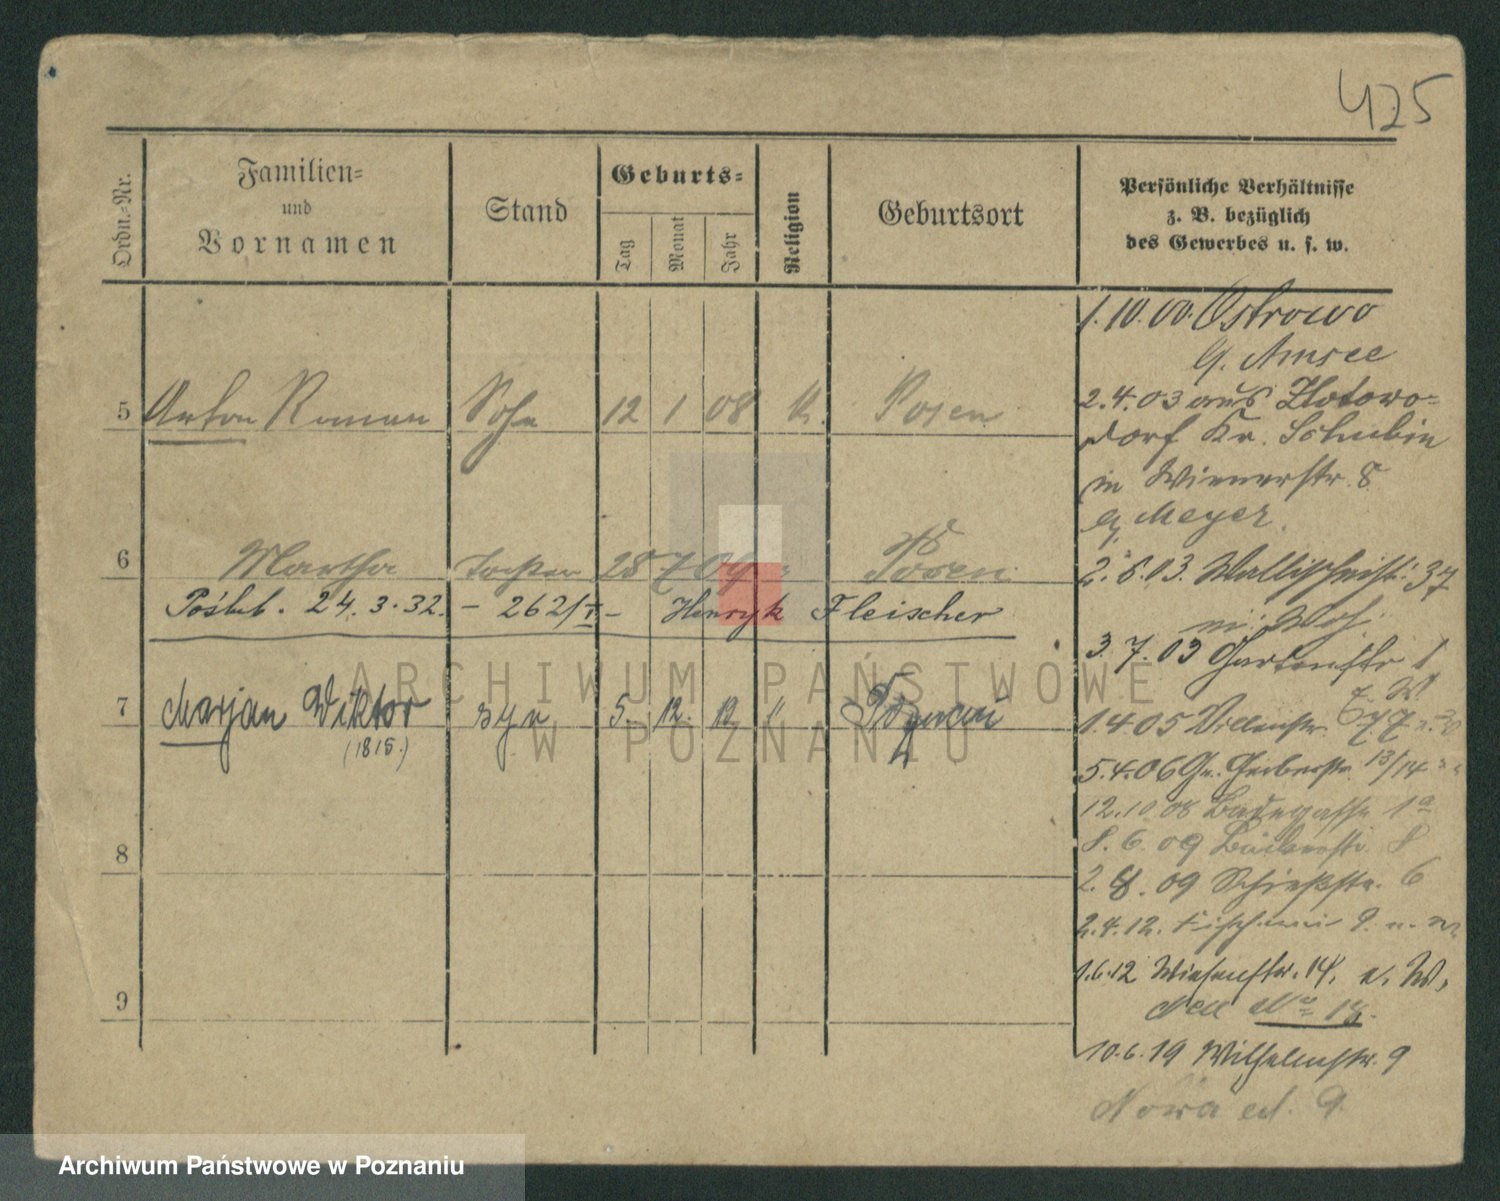 425
Ordn.-Nr.
Familien-
und
Vornamen
Stand
Geburts-
Tag
Monat
Jahr
Religion
Geburtsort
Persönliche Verhältnisse
z. B. bezüglich
des Gewerbes u. s. w.
5 Anton Roman Sohn 12 1 08 k. Posen
6 Martha Tochter 28 7 09 " Posen
Poślub. 24.3.32. – 262/I – Henryk Fleischer
7 Marjan Wiktor syn 5. 12. 12 " Poznań
(1815.)
8
9
1.10.00. Ostrowo
G. Amsee
2.4.03 aus Zlotowo-
dorf Kr. Schubin
in Wienerstr. 8
Meyer.
2.5.03. Wallischeistr. 37
m. Woh.
3.7.03 Gartenstr 1
1.4.05
5.4.06 Gr. Gerberstr. 13/14
12.10.08 Badegasse 1a
8.6.09 Bäckerstr. 8
2.8.09 Schießstr. 6
2.4.12. Fischerei 9.
1.6.12 Wiesenstr. 14, e. W,
Neu No 18.
10.6.19 Wilhelmstr. 9
Nowa 9.
ARCHIWUM PAŃSTWOWE
W POZNANIU
Archiwum Państwowe w Poznaniu